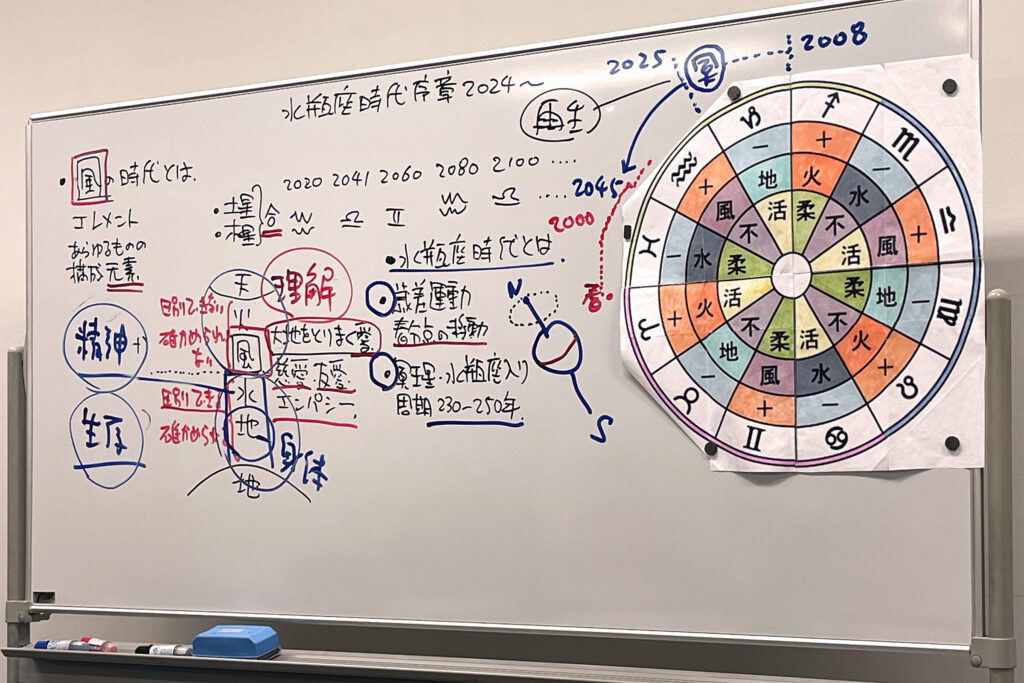 水瓶座時代序章2024〜
再生
2025
冥
2008
2045
2000
春
・風の時代とは、
エレメント
あらゆるものの
構成元素。
2020 2041 2060 2080 2100 ....
・土星
・木星
合
♒ ♎ ♊ ♒ ♎ ....
・水瓶座時代とは
歳差運動
春分点の移動
冥王星・水瓶座入り
周期 230-250年.
N
S
天
理解
火
風
大地をとりまく愛
水
慈愛・友愛
エンパシー.
地
身体
地
精神
生存
確かめられ
ない
確かめられ
♑ ♐ ♏ ♎ ♍ ♌ ♋ ♊ ♉ ♈ ♓ ♒
− + − + − + − + − + − +
地 火 水 風 地 火 水 風 地 火 水 風
活 柔 不 活 柔 不 活 柔 不 活 柔 不